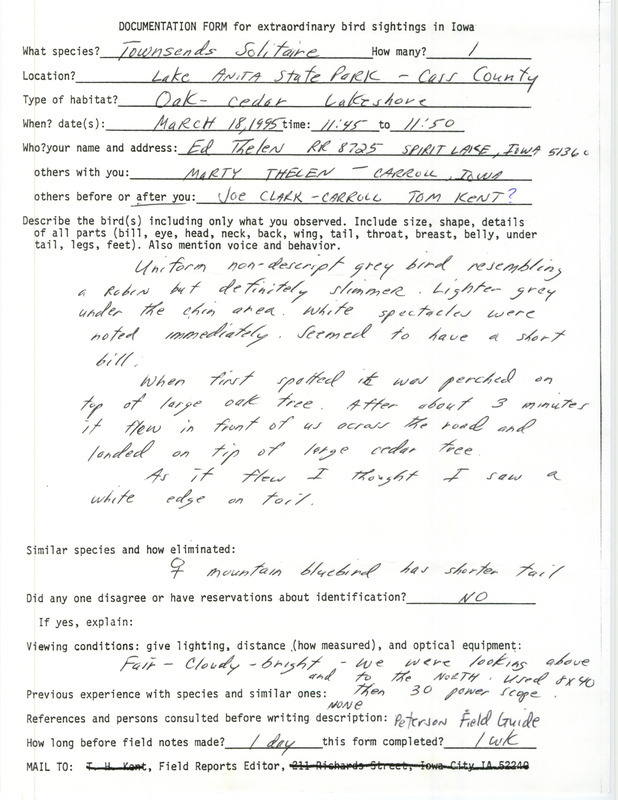 DOCUMENTATION FORM for extraordinary bird sightings in Iowa
What species? Townsends Solitaire How many? 1
Location? Lake ANITA State PARK - Cass County
Type of habitat? Oak- cedar Lakeshore
When? date(s): MARCH 18, 1995 time: 11:45 to 11:50
Who?your name and address: Ed Thelen RR 8725 SPIRIT LAKE, IOWA 51360
others with you: MARTY THELEN - CARROLL, IOWA
others before or after you: JOE CLARK-CARROLL TOM KENT?
Describe the bird(s) including only what you observed. Include size, shape, details
of all parts (bill, eye, head, neck, back, wing, tail, throat, breast, belly, under
tail, legs, feet). Also mention voice and behavior.
Uniform non-descript grey bird resembling
a ROBIN but definitely slimmer. Lighter grey
under the chin area. White spectacles were
noted immediately. Seemed to have a short
bill.
When first spotted it was perched on
top of large oak tree. After about 3 minutes
it flew in front of us across the road and
landed on tip of large cedar tree.
As it flew I thought I saw a
white edge on tail.
Similar species and how eliminated:
♀ mountain bluebird has shorter tail
Did any one disagree or have reservations about identification? NO
If yes, explain:
Viewing conditions: give lighting, distance (how measured), and optical equipment:
Fair - Cloudy - bright - we were looking above
and to the NORTH. Used 8x40
Previous experience with species and similar ones: then 30 power scope.
NONE
References and persons consulted before writing description: Peterson Field Guide
How long before field notes made? 1 day this form completed? 1 wk
MAIL TO: T. H. Kent, Field Reports Editor, 211 Richards Street, Iowa City IA 52240